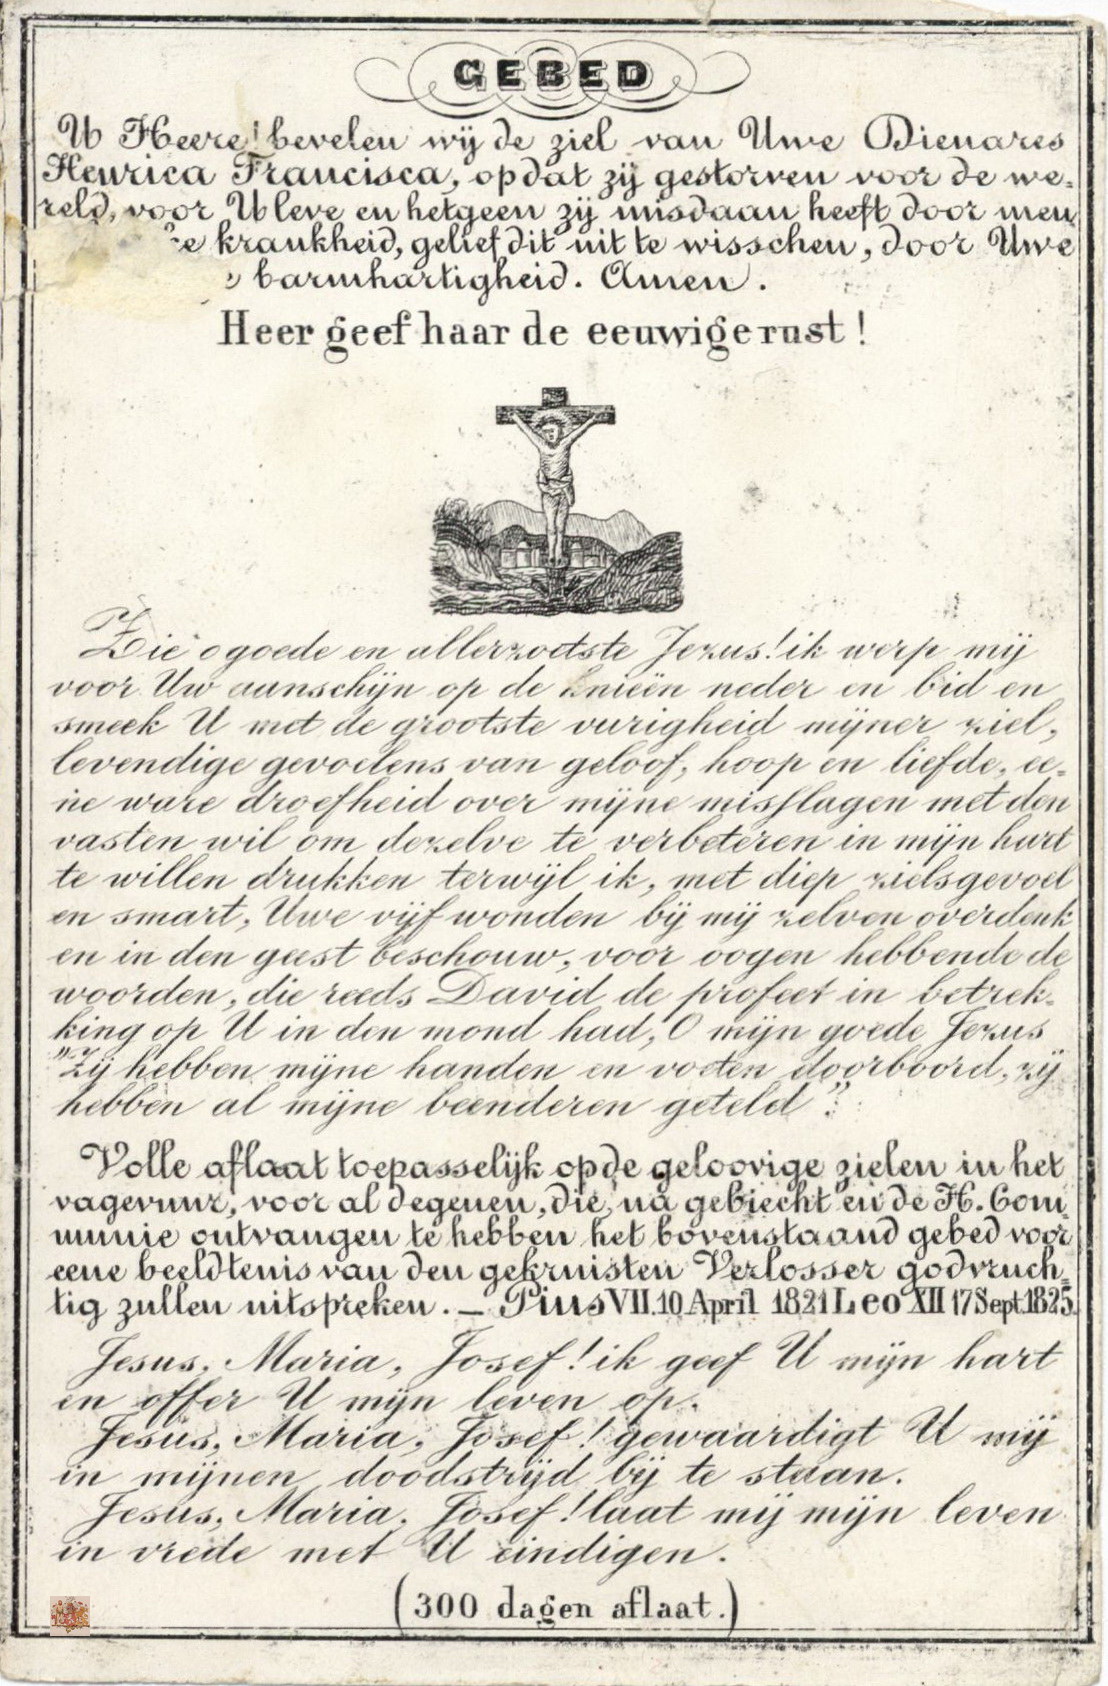 GEBED
U Heere! bevelen wij de ziel van Uwe Dienares
Henrica Francisca, opdat zij gestorven voor de we-
reld, voor U leve en hetgeen zij misdaan heeft door men
ke krankheid, gelief dit uit te wisschen, door Uwe
barmhartigheid. Amen.
Heer geef haar de eeuwige rust!
Zie o goede en allerzoetste Jezus! ik werp mij
voor Uw aanschijn op de knieën neder en bid en
smeek U met de grootste vurigheid mijner ziel,
levendige gevoelens van geloof, hoop en liefde, ee-
ne ware droefheid over mijne misslagen met den
vasten wil om dezelve te verbeteren in mijn hart
te willen drukken terwijl ik, met diep zielsgevoel
en smart, Uwe vijf wonden bij mij zelven overdenk
en in den geest beschouw, voor oogen hebbende de
woorden, die reeds David de profeet in betrek-
king op U in den mond had, O mijn goede Jezus
"Zij hebben mijne handen en voeten doorboord, zij
hebben al mijne beenderen geteld".
Volle aflaat toepasselijk op de geloovige zielen in het
vagevuur, voor al degenen, die, na gebiecht en de H. Com-
munie ontvangen te hebben het bovenstaand gebed voor
eene beeldtenis van den gekruisten Verlosser godvruch-
tig zullen uitspreken. — Pius VII. 10 April 1821 Leo XII 17 Sept. 1825.
Jesus, Maria, Josef! ik geef U mijn hart
en offer U mijn leven op.
Jesus, Maria, Josef! gewaardigt U mij
in mijnen doodstrijd bij te staan.
Jesus, Maria, Josef! laat mij mijn leven
in vrede met U eindigen.
(300 dagen aflaat.)